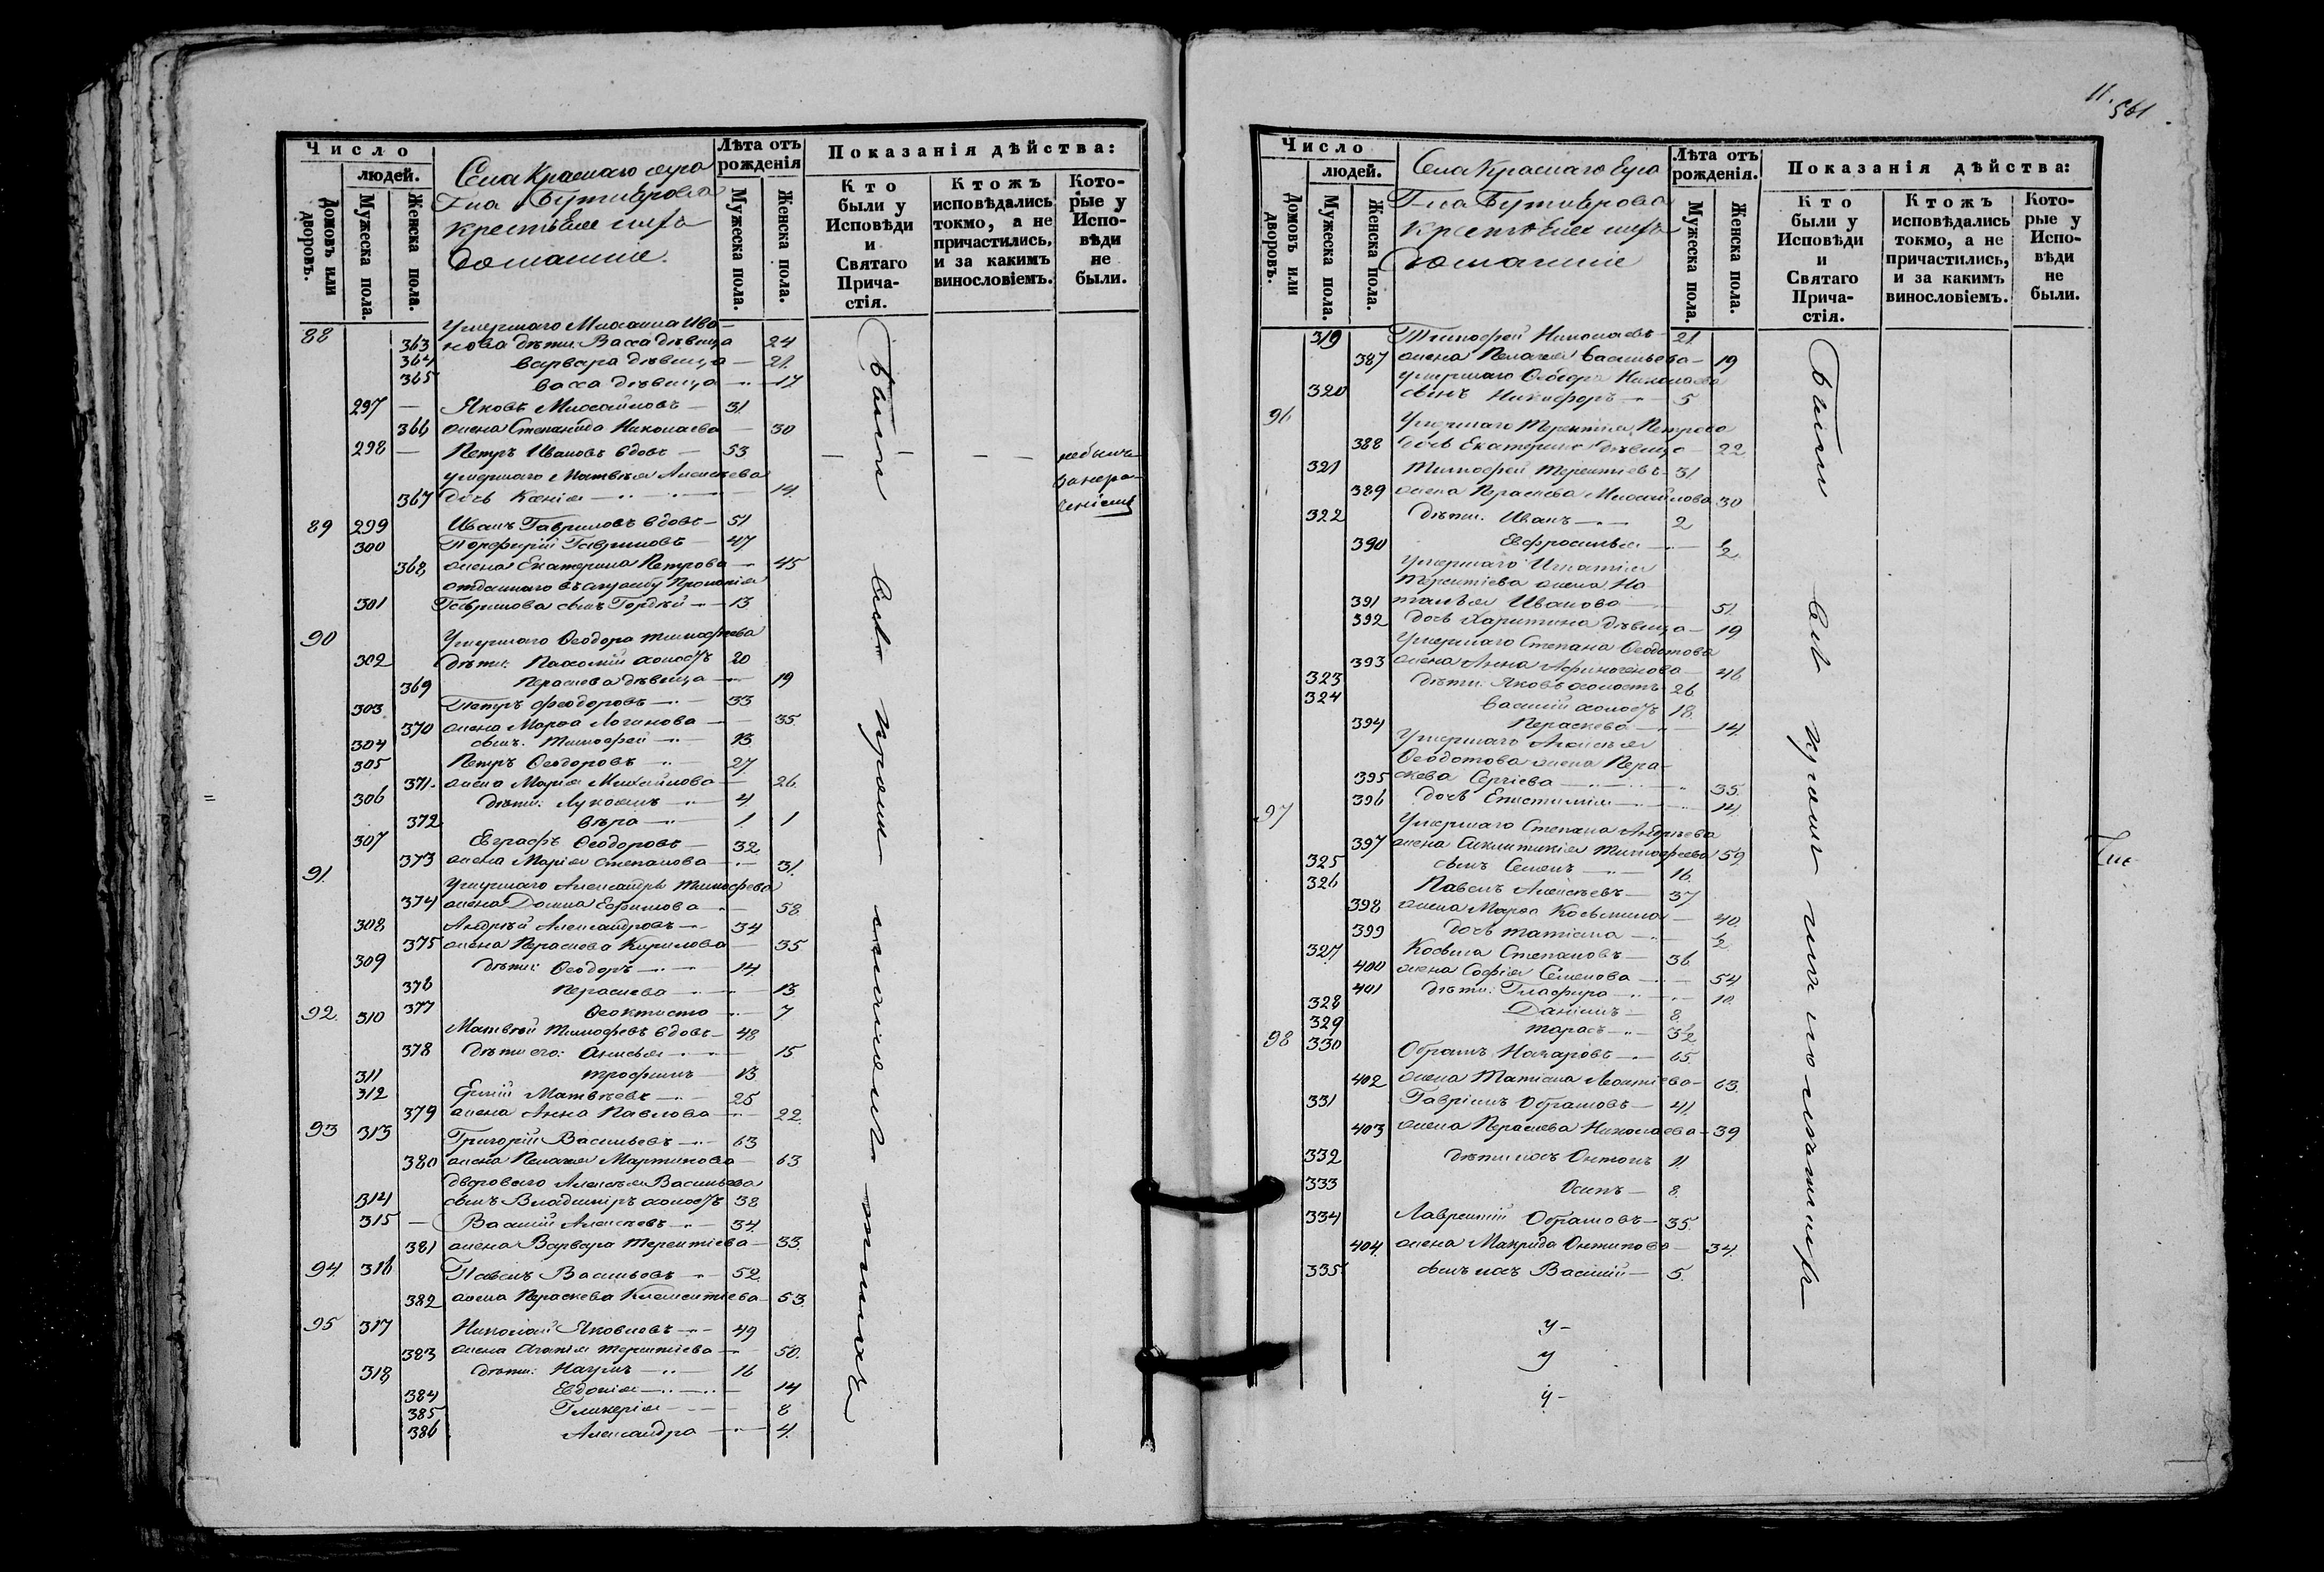 11.
561
Число
людей.
Домовъ или дворовъ.
Мужеска пола.
Женска пола.
Села Краснаго
Г-на Бутиврова
крестьяне ихъ
домашние
Лѣта отъ рожденія
Мужеска пола.
Женска пола.
Показанія дѣйства:
Кто были у Исповѣди и Святаго Прича-стія.
Ктожъ исповѣдались токмо, а не причастились, и за какимъ винословіемъ.
Кото-рые у Испо-вѣди не были.
88 Умершаго Михаила Ива-
363 нова дѣти: Васса дѣвица 24
364 Варвара дѣвица — 21
365 Васса дѣвица — 17
297 — Яковъ Михайловъ — 31
366 жена Степанида Николаева — 30
298 — Петръ Ивановъ вдовъ — 53 — — — небылъ
умершаго Матвѣя Алексѣева
367 дочь Ксенія — 14
89 299 Иванъ Гавриловъ вдовъ — 51
300 Порфирій Гавриловъ — 47
368 жена Екатерина Петрова — 45
отданнаго въ службу Прокопія
301 Гаврилова сынъ Гордѣй — 13
90 Умершаго Ѳеодора Тимофеева
302 дѣти: Пахомій холостъ 20
369 Параскева дѣвица — 19
303 Петръ Феодоровъ — 33
370 жена Марѳа Логинова — 35
304 сынъ Тимофей — 13
305 Петръ Ѳеодоровъ — 27
371 жена Марія Михайлова — 26
306 дѣти: Лукоянъ — 4
372 Вѣра — 1 1
307 Евграфъ Ѳеодоровъ — 32
373 жена Марія Степанова — 31
91 Умершаго Александра Тимофеева
374 жена Домна Ефимова — 58
308 Андрей Александровъ — 34
375 жена Параскева Кирилова — 35
309 дѣти: Ѳеодоръ — 14
376 Параскева — 13
377 Ѳеоктиста — 7
92 310 Матвей Тимофеевъ вдовъ — 48
378 дѣти его: Анисья — 15
311 Трофимъ — 13
312 Ермій Матвѣевъ — 25
379 жена Анна Павлова — 22
93 313 Григорій Васильевъ — 63
380 жена Пелагея Мартинова — 63
дворового Алексѣя Васильева
314 сынъ Владимиръ холостъ 38
315 — Василій Алексѣевъ — 34
381 жена Варвара Терентіева — 33
94 316 Павелъ Васильевъ — 52
382 жена Параскева Климентіева — 53
95 317 Николай Яковлевъ — 49
383 жена Агапія Терентіева — 50
318 дѣти: Наумъ — 16
384 Евдокія — 14
385 Гликерія — 8
386 Александра — 4
Были вси
Число
людей.
Домовъ или дворовъ.
Мужеска пола.
Женска пола.
Села Краснаго
Г-на Бутиврова
крестьяне ихъ
домашние
Лѣта отъ рожденія.
Мужеска пола.
Женска пола.
Показанія дѣйства:
Кто были у Исповѣди и Святаго Прича-стія.
Ктожъ исповѣдались токмо, а не причастились, и за какимъ винословіемъ.
Кото-рые у Испо-вѣди не были.
319 Тимофей Николаевъ — 21
387 жена Пелагея Васильева — 19
умершаго Ѳеодора Николаева
320 сынъ Никифоръ — 5
96 Умершаго Терентія Петрова
388 дочь Екатерина дѣвица — 22
321 Тимофей Терентіевъ — 31
389 жена Параскева Михайлова 30
322 дѣти: Иванъ — 2
390 Евфросинья — ½
Умершаго Игнатія
Терентіева жена На-
391 талья Иванова — 51
392 дочь Харитина дѣвица — 19
Умершаго Степана Ѳедотова
393 жена Анна Афиногенова — 46
323 дѣти: Яковъ холостъ 26
324 Василій холостъ 18
394 Параскева — 14
Умершаго Алексѣя
Ѳеодотова жена Пара-
395 скева Сергіева — 35
396 дочь Епистимія — 14
97 Умершаго Степана Андреева
397 жена Синклитикія Тимофеева 59
325 сынъ Семенъ — 16
326 Павелъ Алексѣевъ — 37
398 жена Марѳа Косьмина — 40
399 дочь Татіана — ½
327 Косьма Степановъ — 36
400 жена Софія Семенова — 54
401 дѣти: Глафира — 10
328 Даніилъ — 8
329 Тарасъ — 3½
98 330 Обрамъ Назаровъ — 65
402 жена Татіана Леонтіева — 63
331 Гавріилъ Обрамовъ — 41
403 жена Параскева Николаева — 39
332 дѣти ихъ Онтонъ 11
333 Осипъ — 8
334 Лаврентій Обрамовъ — 35
404 жена Макрида Онтипова — 34
335 сынъ ихъ Василій — 5
Были вси